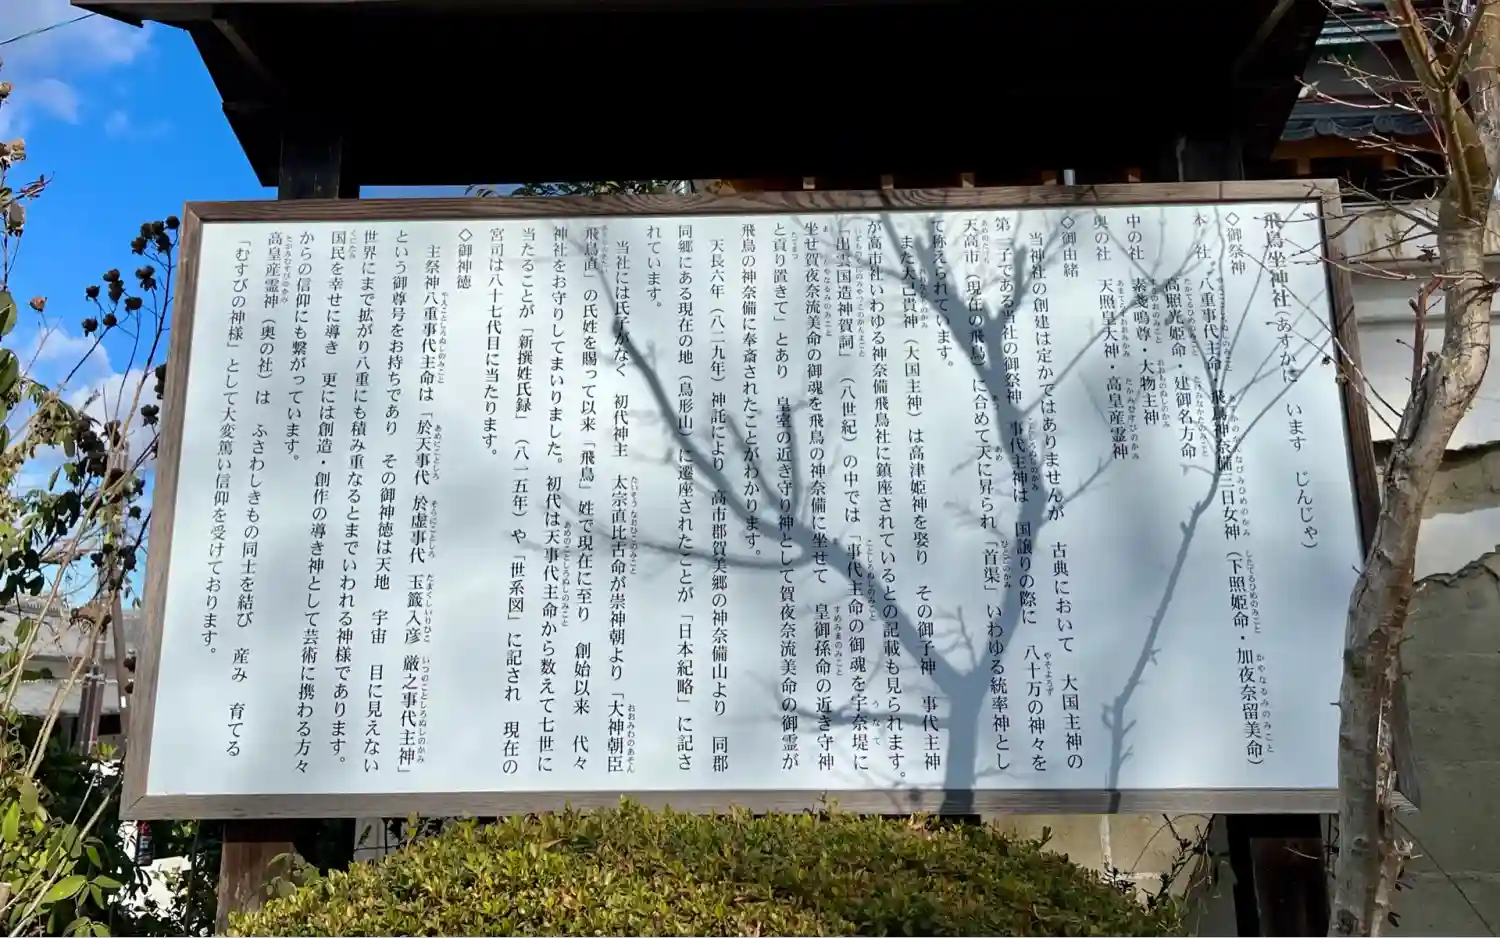 飛鳥坐神社(あすかに います じんじゃ)
◇御祭神
本 社 八重事代主命・飛鳥神奈備三日女神(下照姫命・加夜奈留美命)
高照光姫命・建御名方命
中の社 素盞鳴尊・大物主神
奥の社 天照皇大神・高皇産霊神
◇御由緒
当神社の創建は定かではありませんが 古典において 大国主神の
第一子である当社の御祭神 事代主神は 国譲りの際に 八十万の神々を
天高市(現在の飛鳥)に合めて天に昇られ「首渠」いわゆる統率神とし
て称えられています。
また大己貴神(大国主神)は高津姫神を娶り その御子神 事代主神
が高市社いわゆる神奈備飛鳥社に鎮座されているとの記載も見られます。
「出雲国造神賀詞」(八世紀)の中では「事代主命の御魂を宇奈堤に
坐せ賀夜奈流美命の御魂を飛鳥の神奈備に坐せて 皇御孫命の近き守神
と貢り置きて」とあり 皇室の近き守り神として賀夜奈流美命の御霊が
飛鳥の神奈備に奉斎されたことがわかります。
天長六年(八二九年)神託により 高市郡賀美郷の神奈備山より 同郡
同郷にある現在の地(鳥形山)に遷座されたことが「日本紀略」に記さ
れています。
当社には氏子がなく 初代神主 太宗直比古命が崇神朝より「大神朝臣
飛鳥直」の氏姓を賜って以来「飛鳥」姓で現在に至り 創始以来 代々
神社をお守りしてまいりました。初代は天事代主命から数えて七世に
当たることが「新撰姓氏録」(八一五年)や「世系図」に記され 現在の
宮司は八十七代目に当たります。
◇御神徳
主祭神八重事代主命は「於天事代 於虚事代 玉籤入彦 厳之事代主神」
という御尊号をお持ちであり その御神徳は天地 宇宙 目に見えない
世界にまで拡がり八重にも積み重なるとまでいわれる神様であります。
国民を幸せに導き 更には創造・創作の導き神として芸術に携わる方々
からの信仰にも繋がっています。
高皇産霊神(奥の社)は ふさわしきもの同士を結び 産み 育てる
「むすびの神様」として大変篤い信仰を受けております。